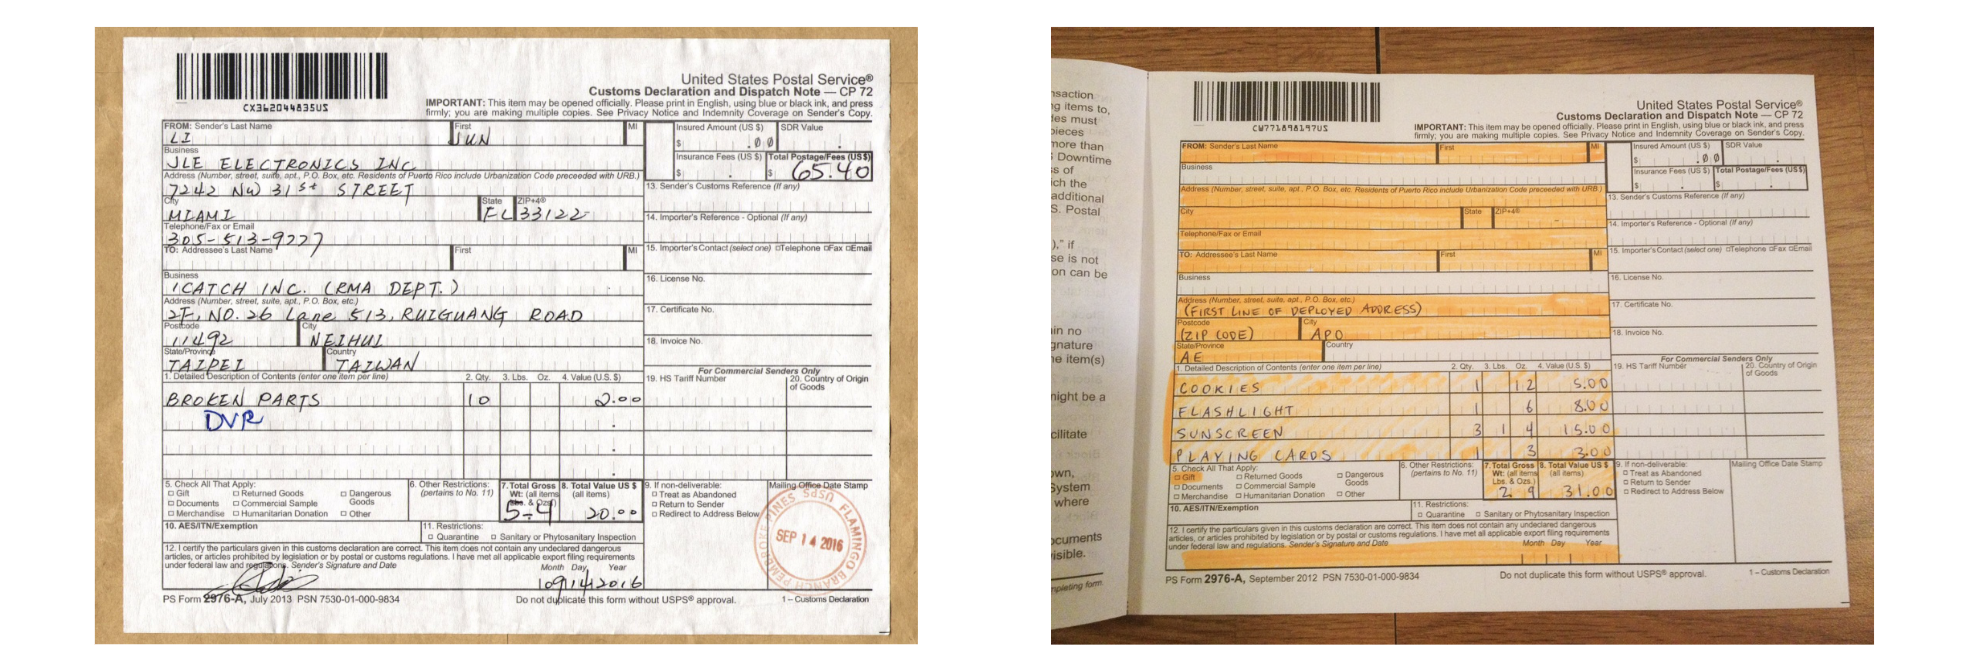 CX362044835US
United States Postal Service®
Customs Declaration and Dispatch Note — CP 72
IMPORTANT: This item may be opened officially. Please print in English, using blue or black ink, and press
firmly; you are making multiple copies. See Privacy Notice and Indemnity Coverage on Sender's Copy.
FROM: Sender's Last Name First MI
LI JUN
Business
JLE ELECTRONICS INC.
Address (Number, street, suite, apt., P.O. Box, etc. Residents of Puerto Rico include Urbanization Code preceeded with URB.)
7242 NW 31st STREET
City State ZIP+4®
MIAMI FL 33122
Telephone/Fax or Email
305-513-9227
TO: Addressee's Last Name First MI
Business
ICATCH INC. (RMA DEPT.)
Address (Number, street, suite, apt., P.O. Box, etc.)
2F, NO. 26 Lane 513, RUIGUANG ROAD
Postcode City
11492 NEIHUI
State/Province Country
TAIPEI TAIWAN
1. Detailed Description of Contents (enter one item per line) 2. Qty. 3. Lbs. Oz. 4. Value (U.S. $)
BROKEN PARTS 10 2.00
DVR
Insured Amount (US $) SDR Value
$ .00
Insurance Fees (US $) Total Postage/Fees (US $)
$ . $ 65.40
13. Sender's Customs Reference (If any)
14. Importer's Reference - Optional (If any)
15. Importer's Contact (select one) Telephone Fax Email
16. License No.
17. Certificate No.
18. Invoice No.
For Commercial Senders Only
19. HS Tariff Number 20. Country of Origin
of Goods
5. Check All That Apply:
Gift Returned Goods Dangerous
Goods
Documents Commercial Sample
Merchandise Humanitarian Donation Other
6. Other Restrictions:
(pertains to No. 11)
7. Total Gross
Wt: (all items
Lbs. & Ozs.)
5-4
8. Total Value US $
(all items)
20.00
9. If non-deliverable:
Treat as Abandoned
Return to Sender
Redirect to Address Below
Mailing Office Date Stamp
PEMBROKE PINES USPS FLAMINGO BRANCH
SEP 14 2016
10. AES/ITN/Exemption
11. Restrictions:
Quarantine Sanitary or Phytosanitary Inspection
12. I certify the particulars given in this customs declaration are correct. This item does not contain any undeclared dangerous
articles, or articles prohibited by legislation or by postal or customs regulations. I have met all applicable export filing requirements
under federal law and regulations. Sender's Signature and Date Month Day Year
09142016
PS Form 2976-A, July 2013 PSN 7530-01-000-9834 Do not duplicate this form without USPS® approval. 1 – Customs Declaration
nsaction
ng items to,
les must
pieces
more than
Downtime
s of
ich the
additional
S. Postal
)," if
se is not
on can be
in no
gnature
ne item(s)
night be a
cilitate
own,
System
where
ocuments
isible.
mpleting form.
CW771898197US
United States Postal Service®
Customs Declaration and Dispatch Note — CP 72
IMPORTANT: This item may be opened officially. Please print in English, using blue or black ink, and press
firmly; you are making multiple copies. See Privacy Notice and Indemnity Coverage on Sender's Copy.
FROM: Sender's Last Name First MI
Business
Address (Number, street, suite, apt., P.O. Box, etc. Residents of Puerto Rico include Urbanization Code preceeded with URB.)
City State ZIP+4®
Telephone/Fax or Email
TO: Addressee's Last Name First MI
Business
Address (Number, street, suite, apt., P.O. Box, etc.)
(FIRST LINE OF DEPLOYED ADDRESS)
Postcode City
(ZIP CODE) APO
State/Province Country
AE
1. Detailed Description of Contents (enter one item per line) 2. Qty. 3. Lbs. Oz. 4. Value (U.S. $)
COOKIES 1 12 5.00
FLASHLIGHT 1 6 8.00
SUNSCREEN 3 1 4 15.00
PLAYING CARDS 1 3 3.00
Insured Amount (US $) SDR Value
$ .00
Insurance Fees (US $) Total Postage/Fees (US $)
$ . $ .
13. Sender's Customs Reference (If any)
14. Importer's Reference - Optional (If any)
15. Importer's Contact (select one) Telephone Fax Email
16. License No.
17. Certificate No.
18. Invoice No.
For Commercial Senders Only
19. HS Tariff Number 20. Country of Origin
of Goods
5. Check All That Apply:
Gift Returned Goods Dangerous
Goods
Documents Commercial Sample
Merchandise Humanitarian Donation Other
6. Other Restrictions:
(pertains to No. 11)
7. Total Gross
Wt: (all items
Lbs. & Ozs.)
2 9
8. Total Value US $
(all items)
31.00
9. If non-deliverable:
Treat as Abandoned
Return to Sender
Redirect to Address Below
Mailing Office Date Stamp
10. AES/ITN/Exemption
11. Restrictions:
Quarantine Sanitary or Phytosanitary Inspection
12. I certify the particulars given in this customs declaration are correct. This item does not contain any undeclared dangerous
articles, or articles prohibited by legislation or by postal or customs regulations. I have met all applicable export filing requirements
under federal law and regulations. Sender's Signature and Date Month Day Year
PS Form 2976-A, September 2012 PSN 7530-01-000-9834 Do not duplicate this form without USPS® approval. 1 – Customs Declaration